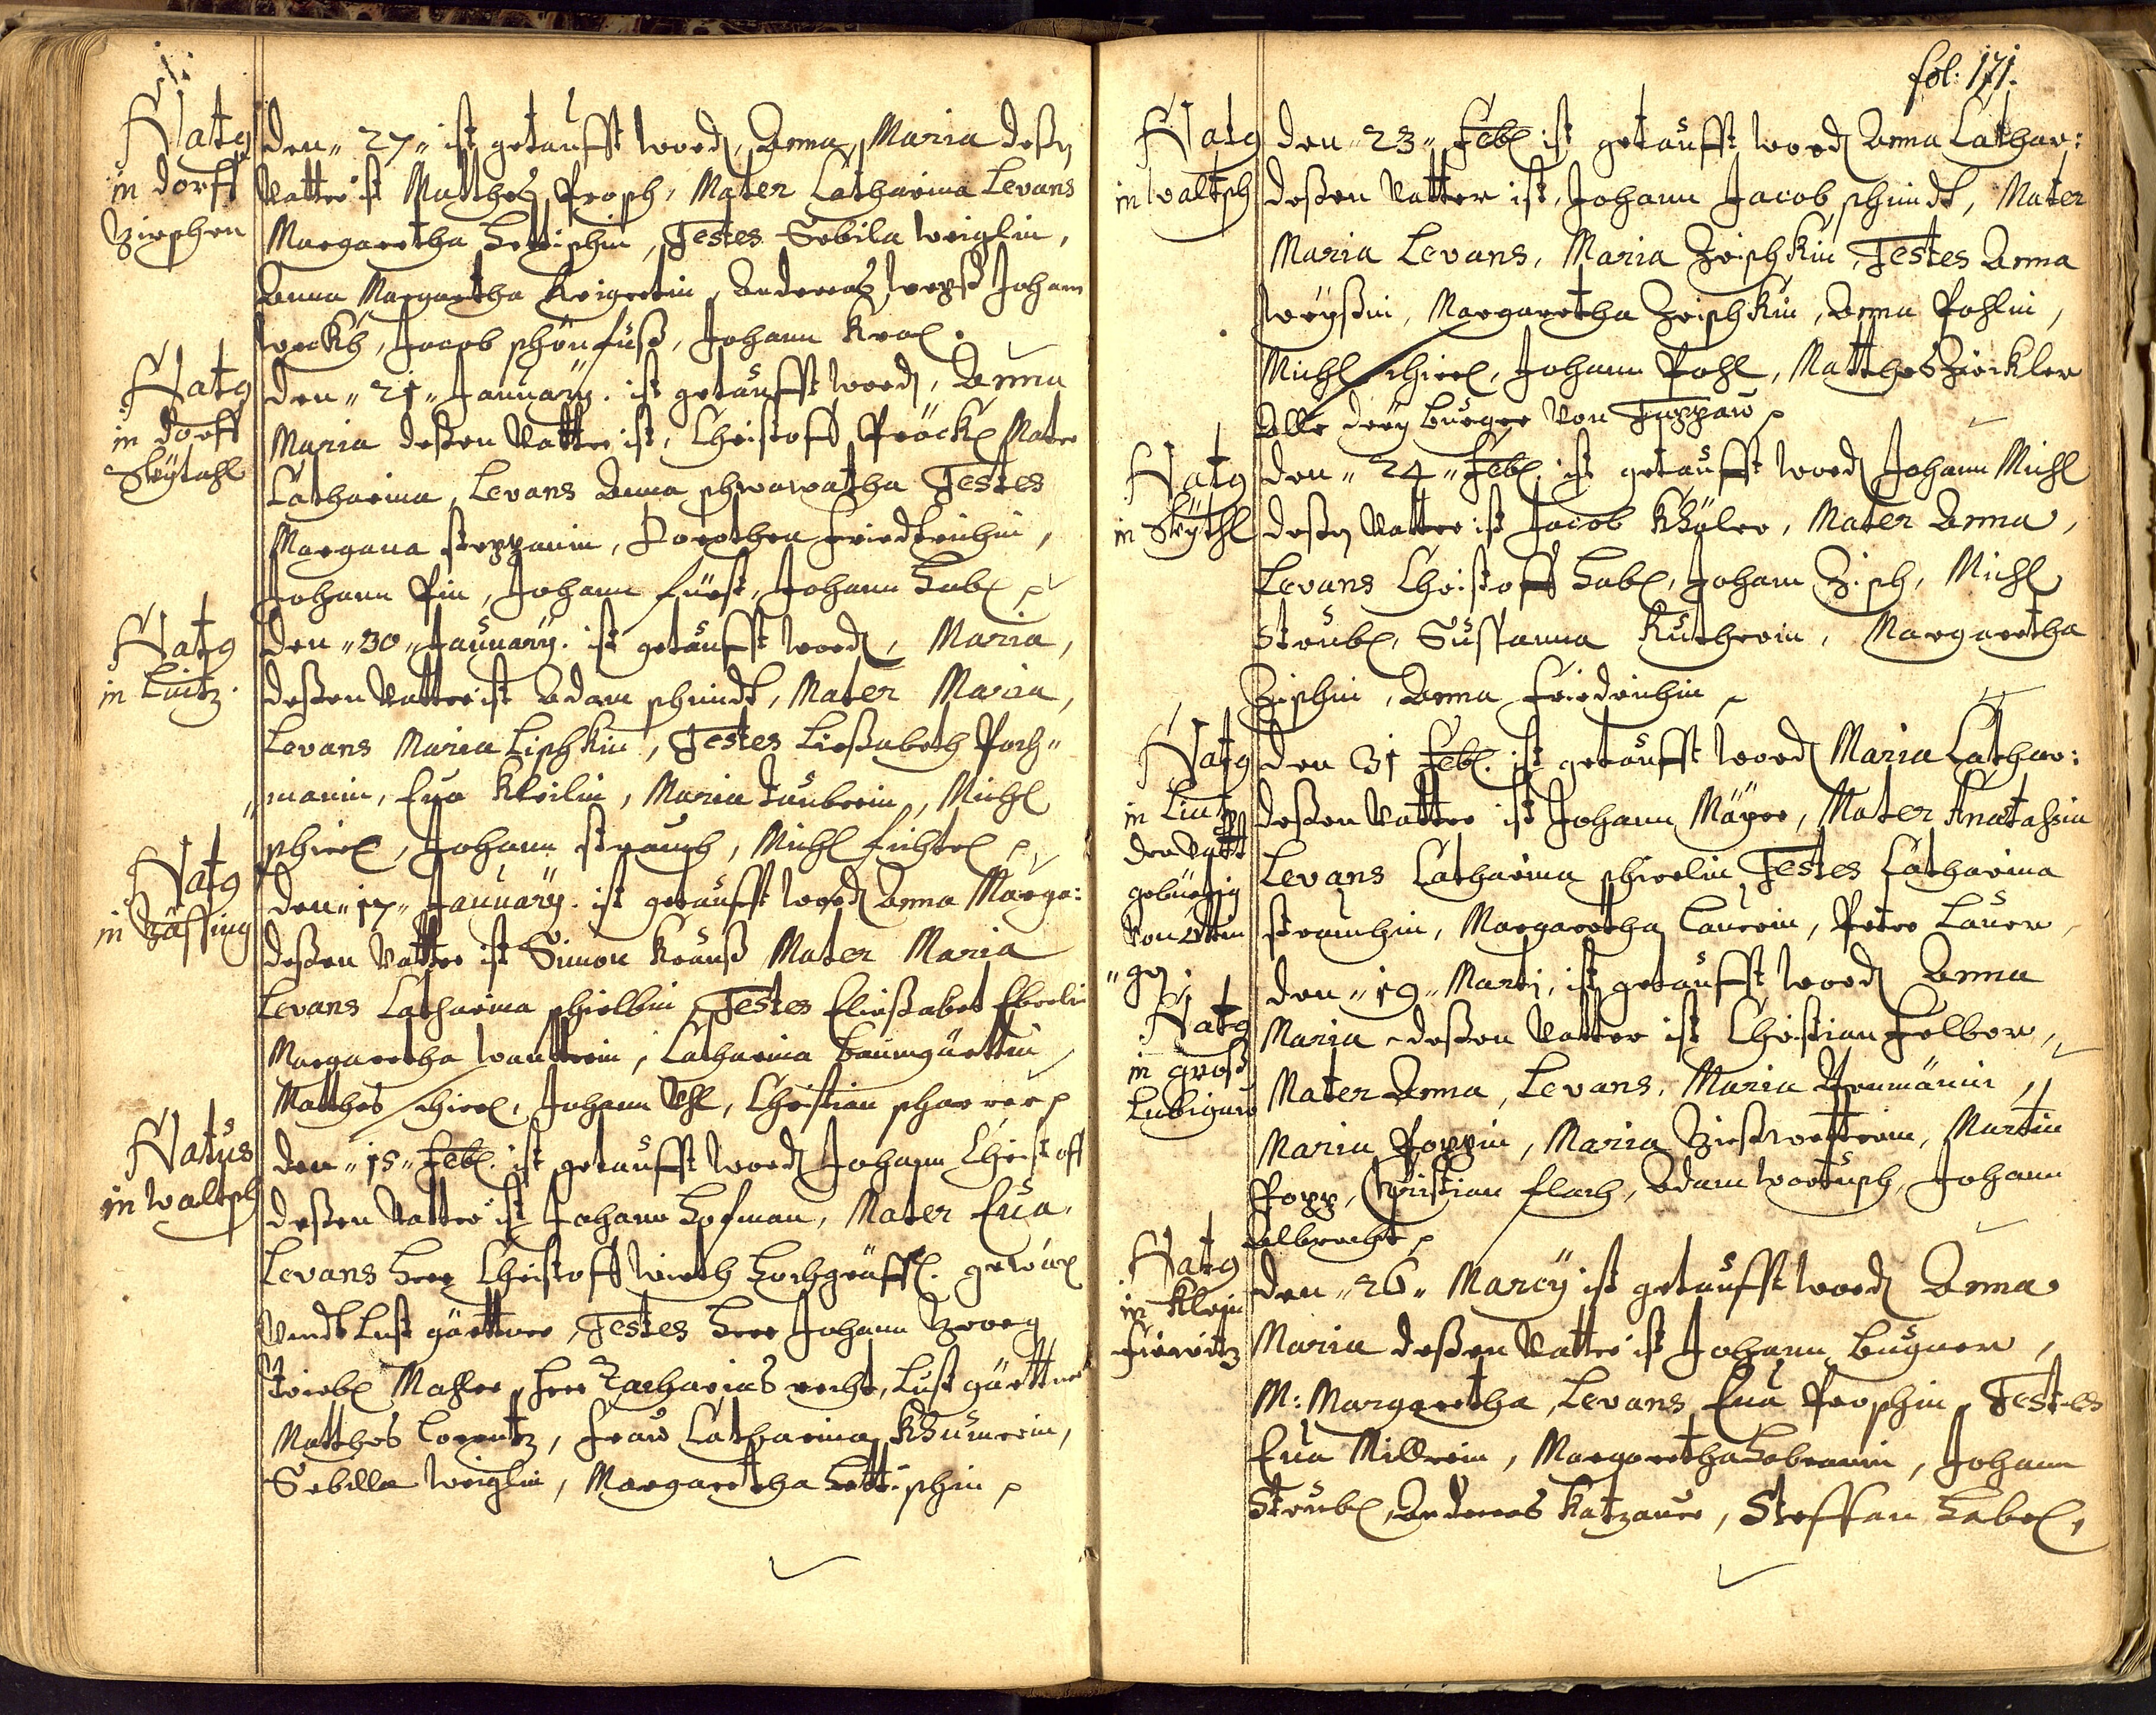 Natg
in dorff
Zirschen
den „ 27 „ ist getaufft word, Anna Maria deßen
Vatter ist Matthes Prosch, Mater Catharina Levans
Margaretha Hettischin, Testes Sebila Weiglin,
Anna Margaretha Krigertin, Andereas Weyß Johann
Jacob schönfuß, Johann
Natg
in dorff
Skÿtahl
den „ 21 „ Januarÿ. ist getaufft word, Anna
Maria deßen Vatter ist, Christoff Pröckl Mater
Catharina, Levans Anna schwawatha Testes
Margana stezzanin, Dorothea Friedrichin,
Johann Pin, Johann fürst, Johann Habl
Natg
in Luitz.
den „ 30 „ Januarÿ. ist getaufft word, Maria,
deßen Vatter ist Adam schmidt, Mater Maria,
Levans Maria Lischkin, Testes Ließabeth Poch„
„manin, Eua Kheilin, Maria Taubrein, Michl
schierl, Johann straub, Michl fichtel
Natg
in Däßing
den „ 17 „ Januarÿ. ist getaufft word Anna Marga:
deßen Vatter ist Simon Krauß Mater Maria
Levans Catharina schielbin, Testes Eließabet Eberlin
Margaretha Wanttrein, Catharina Baumgärttin
Matthes schierl, Johann Uhl, Christian scharrer
Natus
in Waltsch
den „ 15 „ Febl. ist getaufft word Johann Christoff
deßen Vatter ist Johann Hofman, Mater Eua.
Levans Herr Christoff Wirth Hochgräffl.
Lust gärttner, Testes Herr Johann Georg
Mahler, Herr Zacharias recht, Lust gärttner
Matthes Lorentz, Frau Catharina Khümrein,
Sebilla Weiglin, Margaretha Hettischin
fol: 171.
Natg
in Waltsch
den „ 23 „ Febl ist getaufft word Anna Cathar:
deßen Vatter ist, Johann Jacob schmidt, Mater
Maria Levans, Maria Zrischkin, Testes Anna
Weÿßin, Margaretha Zrischkin, Anna Pohlin,
Michl schierl, Johann Pohl, Matthes Zirckler
Alle dreÿ Burger Von Tuppau
Natg
in Skÿthl
den „ 24 „ Febl. ist getaufft word Johann Michl
deßen Vatter ist Jacob Khöler, Mater Anna,
Levans Christoff Habl, Johann Zisch, Michl
Strubl, Sussanna Kutherin, Margaretha
Zischin, Anna Friedrichin
Natg
in Liutz
der Vatt
gebürtig
Von Ottin
„gen.
den 31 Febl. ist getaufft word Maria Cathar:
deßen Vatter ist Johann Mäyer, Mater Anatahsia
Levans Catharina schirelin Testes Catharina
straubin, Margaretha Laurin, Peter Lauer
Natg
in Groß
Lubigau
den „ 19 „ Marti, ist getaufft word Anna
Maria deßen Vatter ist Christian Felber,
Mater Anna, Levans, Maria
Maria Poppin, Maria Ziettwetterin, Martin
Popp, Christian flach, Adam Wortusch, Johann
Albrecht
Natg
in Klein
Fürwitz
den „ 26 „ Marcÿ ist getaufft word Anna
Maria deßen Vatter ist Johann Bugner,
M: Margaretha, Levans Eua Proschin, Testes
Eua Millrein, Margaretha Habranin, Johann
Strubl, Andereas Katzauer, Steffan Habel,